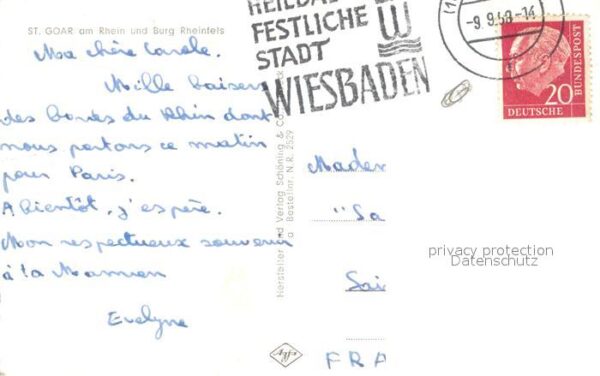 ST. GOAR am Rhein und Burg Rheinfels
Ma chère Carole.
Mille baisers
des bords du Rhin dont
nous partons ce matin
pour Paris.
A bientôt, j'espère.
Mon respectueux souvenir
à ta Maman
Evelyne
FESTLICHE
STADT
WIESBADEN
-9.9.58-14
20
DEUTSCHE
BUNDESPOST
Hersteller und Verlag Schöning & Co
Bestellnr. N.R. 2529
Madem
"Sa
Sai
FRA
privacy protection
Datenschutz